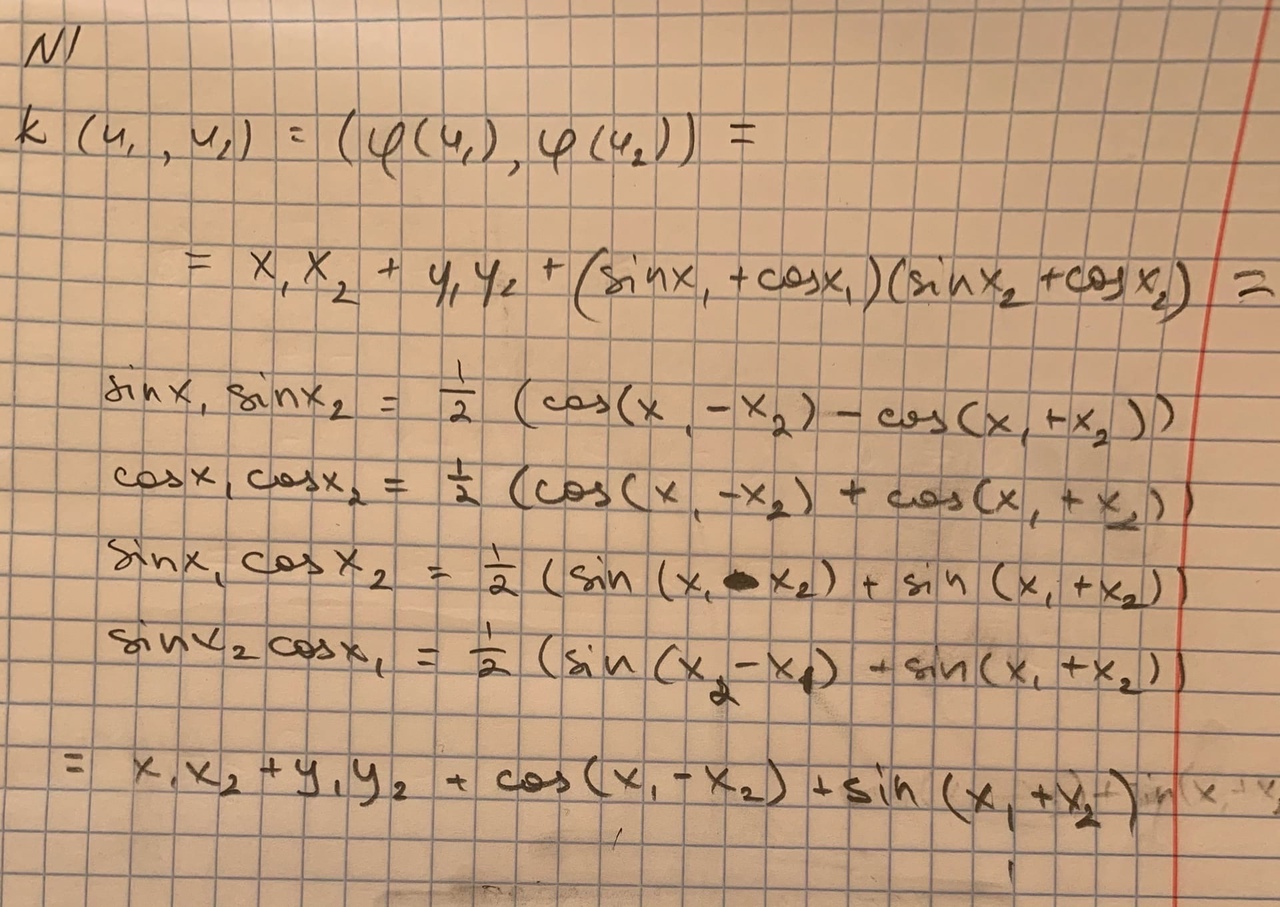 N1
k (u₁, u₂) = (φ(u₁), φ(u₂)) =
= x₁x₂ + y₁y₂ + (sinx₁ + cosx₁)(sinx₂ + cosx₂) =
sinx₁ sinx₂ = 1/2 (cos(x₁ - x₂) - cos(x₁ + x₂))
cosx₁ cosx₂ = 1/2 (cos(x₁ - x₂) + cos(x₁ + x₂))
sinx₁ cosx₂ = 1/2 (sin (x₁ x₂) + sin (x₁ + x₂))
sinx₂ cosx₁ = 1/2 (sin (x₂ - x₁) + sin(x₁ + x₂))
= x₁x₂ + y₁y₂ + cos(x₁ - x₂) + sin (x₁ + x₂)